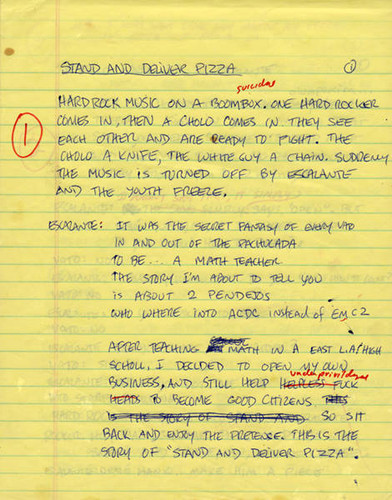 STAND AND DELIVER PIZZA
1
suicidal
HARD ROCK MUSIC ON A BOOMBOX. ONE HARD ROCKER
COMES IN, THEN A CHOLO COMES IN. THEY SEE
1
EACH OTHER AND ARE READY TO FIGHT. THE
CHOLO A KNIFE, THE WHITE GUY A CHAIN. SUDDENLY
THE MUSIC IS TURNED OFF BY ESCALANTE
AND THE YOUTH FREEZE.
ESCALANTE: IT WAS THE SECRET FANTASY OF EVERY VATO
IN AND OUT OF THE PACHUCADA
TO BE... A MATH TEACHER
THE STORY I'M ABOUT TO TELL YOU
IS ABOUT 2 PENDEJOS
WHO WHERE INTO ACDC INSTEAD OF EMC2
AFTER TEACHING MATH IN A EAST L.A. HIGH
SCHOLL, I DECIDED TO OPEN MY OWN
underprivileged
BUSINESS, AND STILL HELP HELPLESS FUCK
HEADS TO BECOME GOOD CITIZENS. THIS
IS THE STORY OF STAND AND SO SIT
BACK AND ENJOY THE PRETENSE. THIS IS THE
STORY OF "STAND AND DELIVER PIZZA".